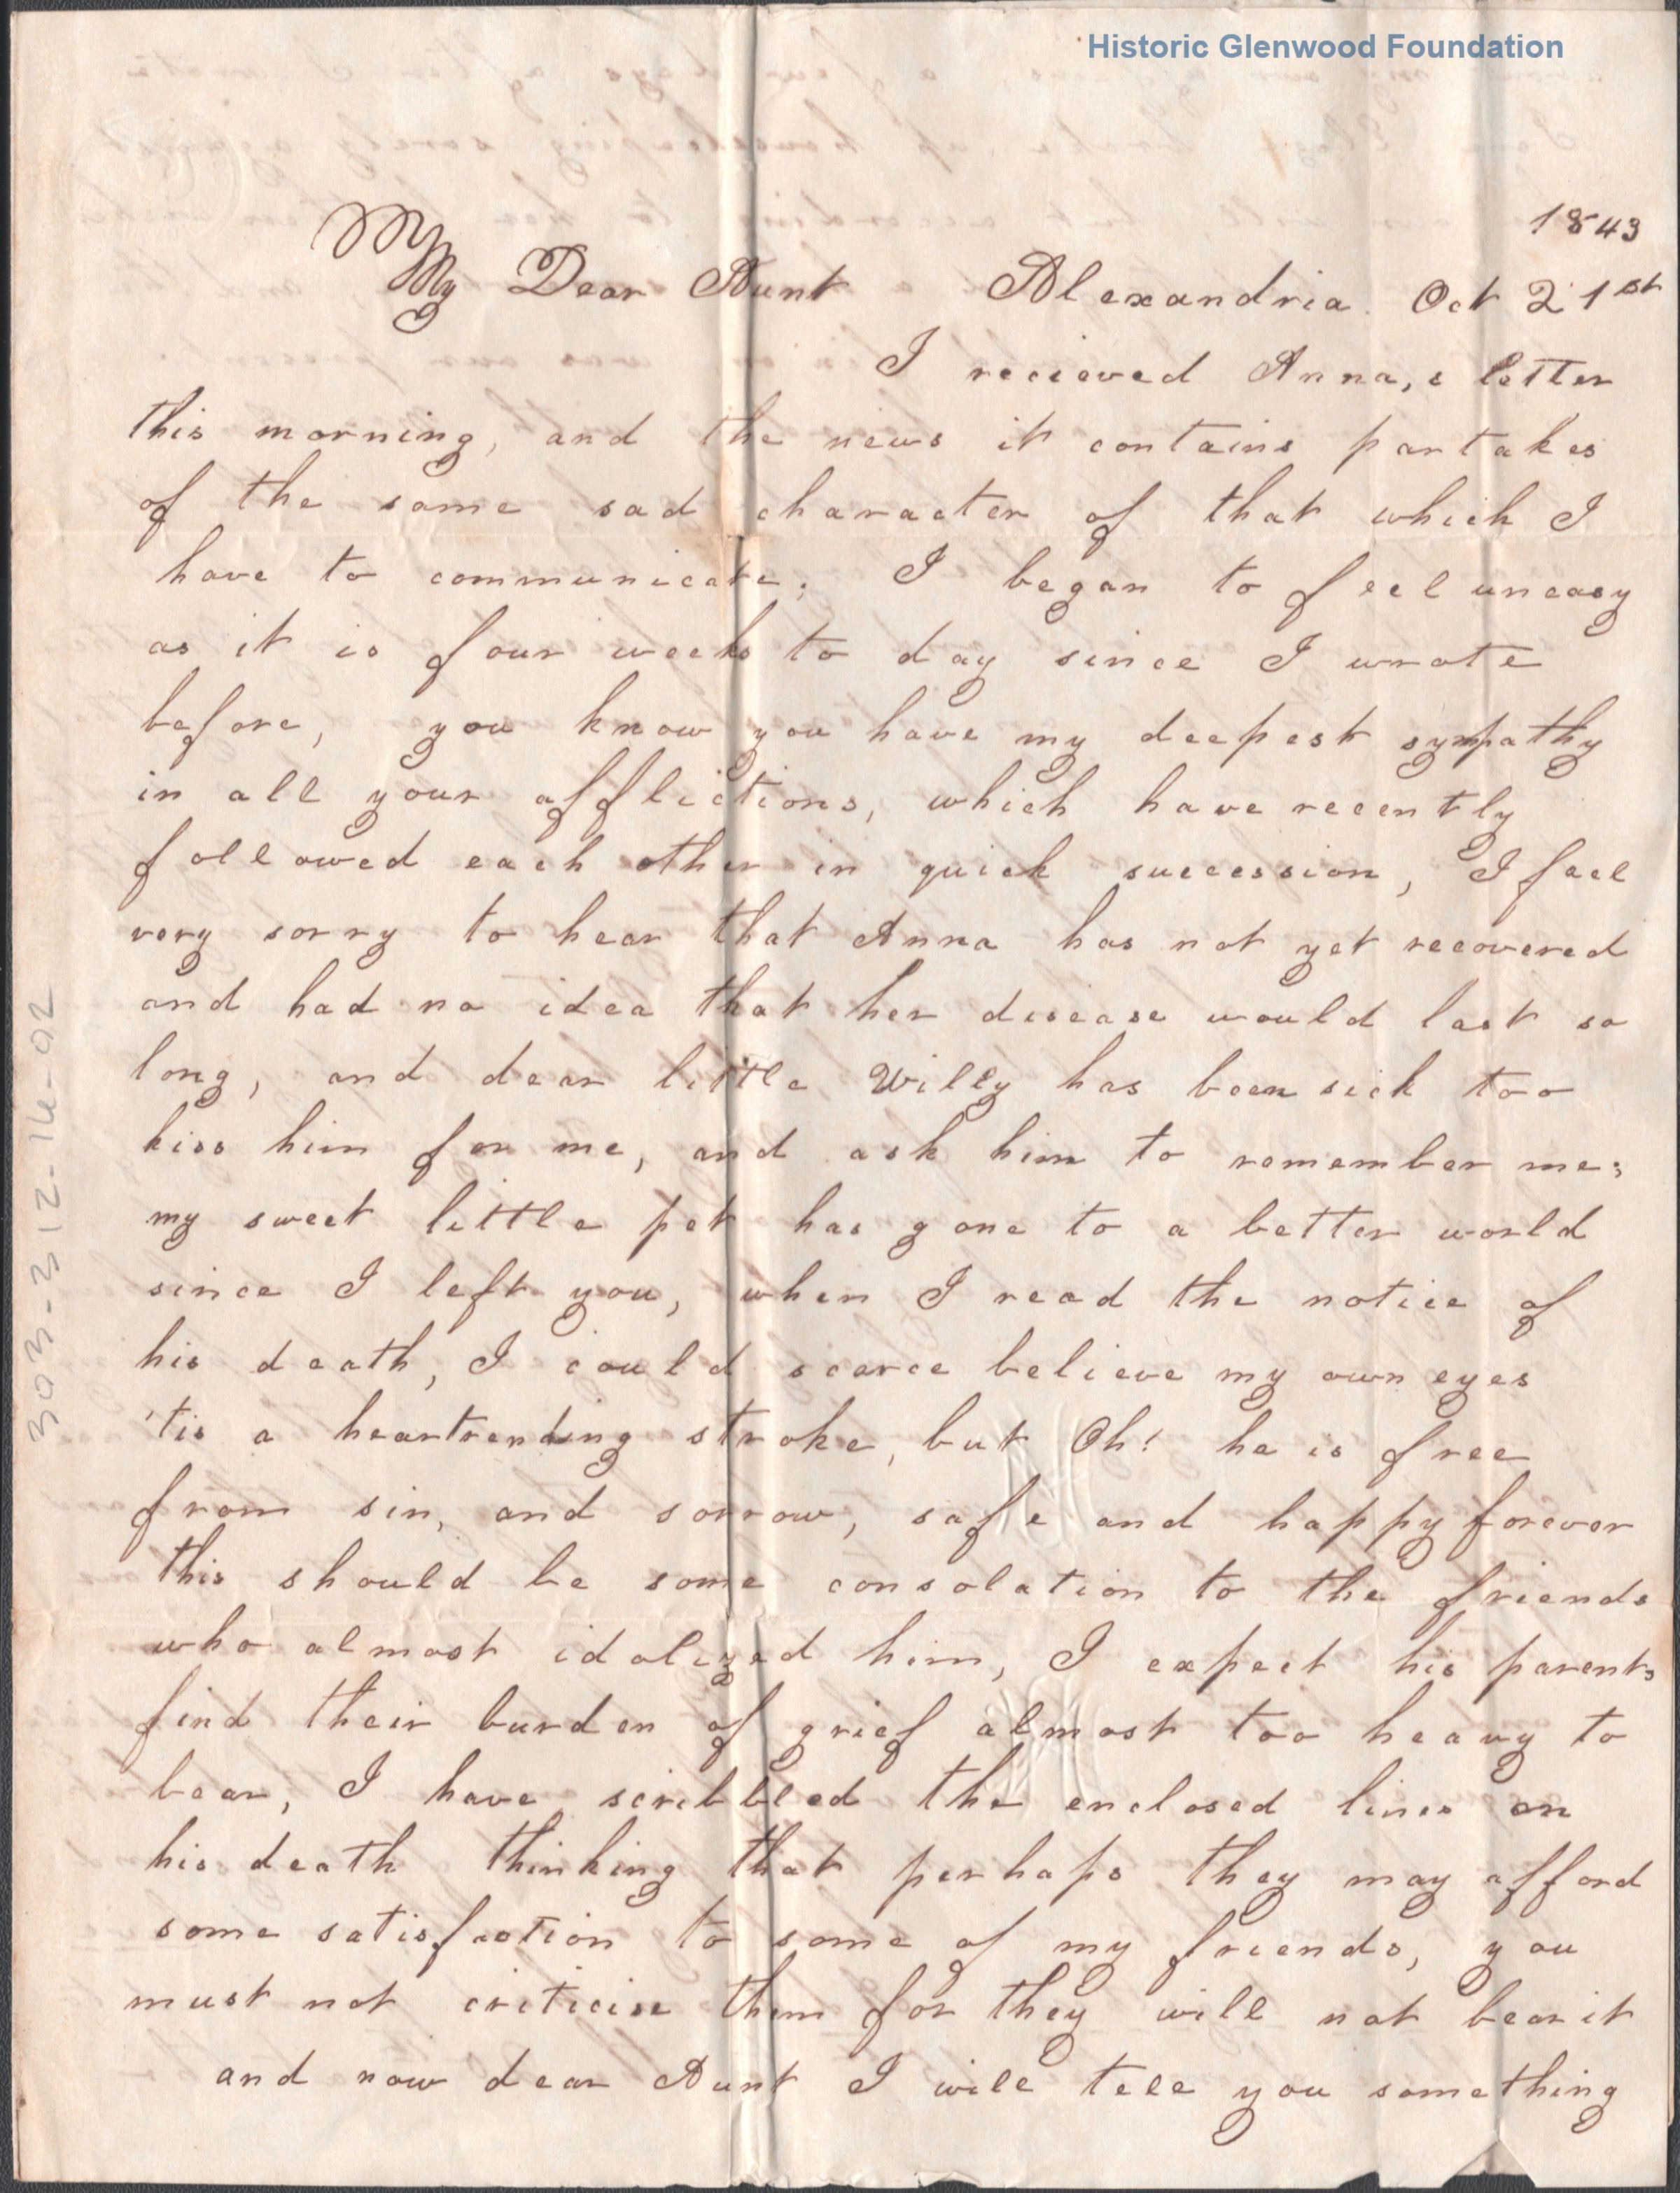 Historic Glenwood Foundation
1843
My
My Dear Aunt Alexandria. Oct 21st
I recieved Anna,s letter
this morning, and the news it contains partakes
of the same sad character of that which I
have to communicate. I began to feel uneasy
as it is four weeks to day since I wrote
before, you know you have my deepest sympathy
in all your afflictions, which have recently
followed each other in quick succession, I feel
very sorry to hear that Anna has not yet recovered
and had no idea that her disease would last so
long, and dear little Willy has been sick too
kiss him for me, and ask him to remember me;
my sweet little pet has gone to a better world
since I left you, when I read the notice of
his death, I could scarce believe my own eyes
'tis a heartrending stroke, but Oh! he is free
from sin, and sorrow, safe and happy forever
this should be some consolation to the friends
who almost idolized him, I expect his parents
find their burden of grief almost too heavy to
bear, I have scribbled the enclosed lines on
his death thinking that perhaps they may afford
some satisfaction to some of my friends, you
must not criticise them for they will not bear it
and now dear Aunt I will tell you something
303-312-14-02